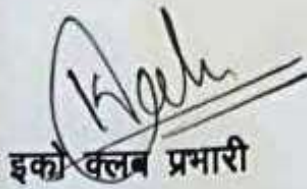 इको क्लब प्रभारी